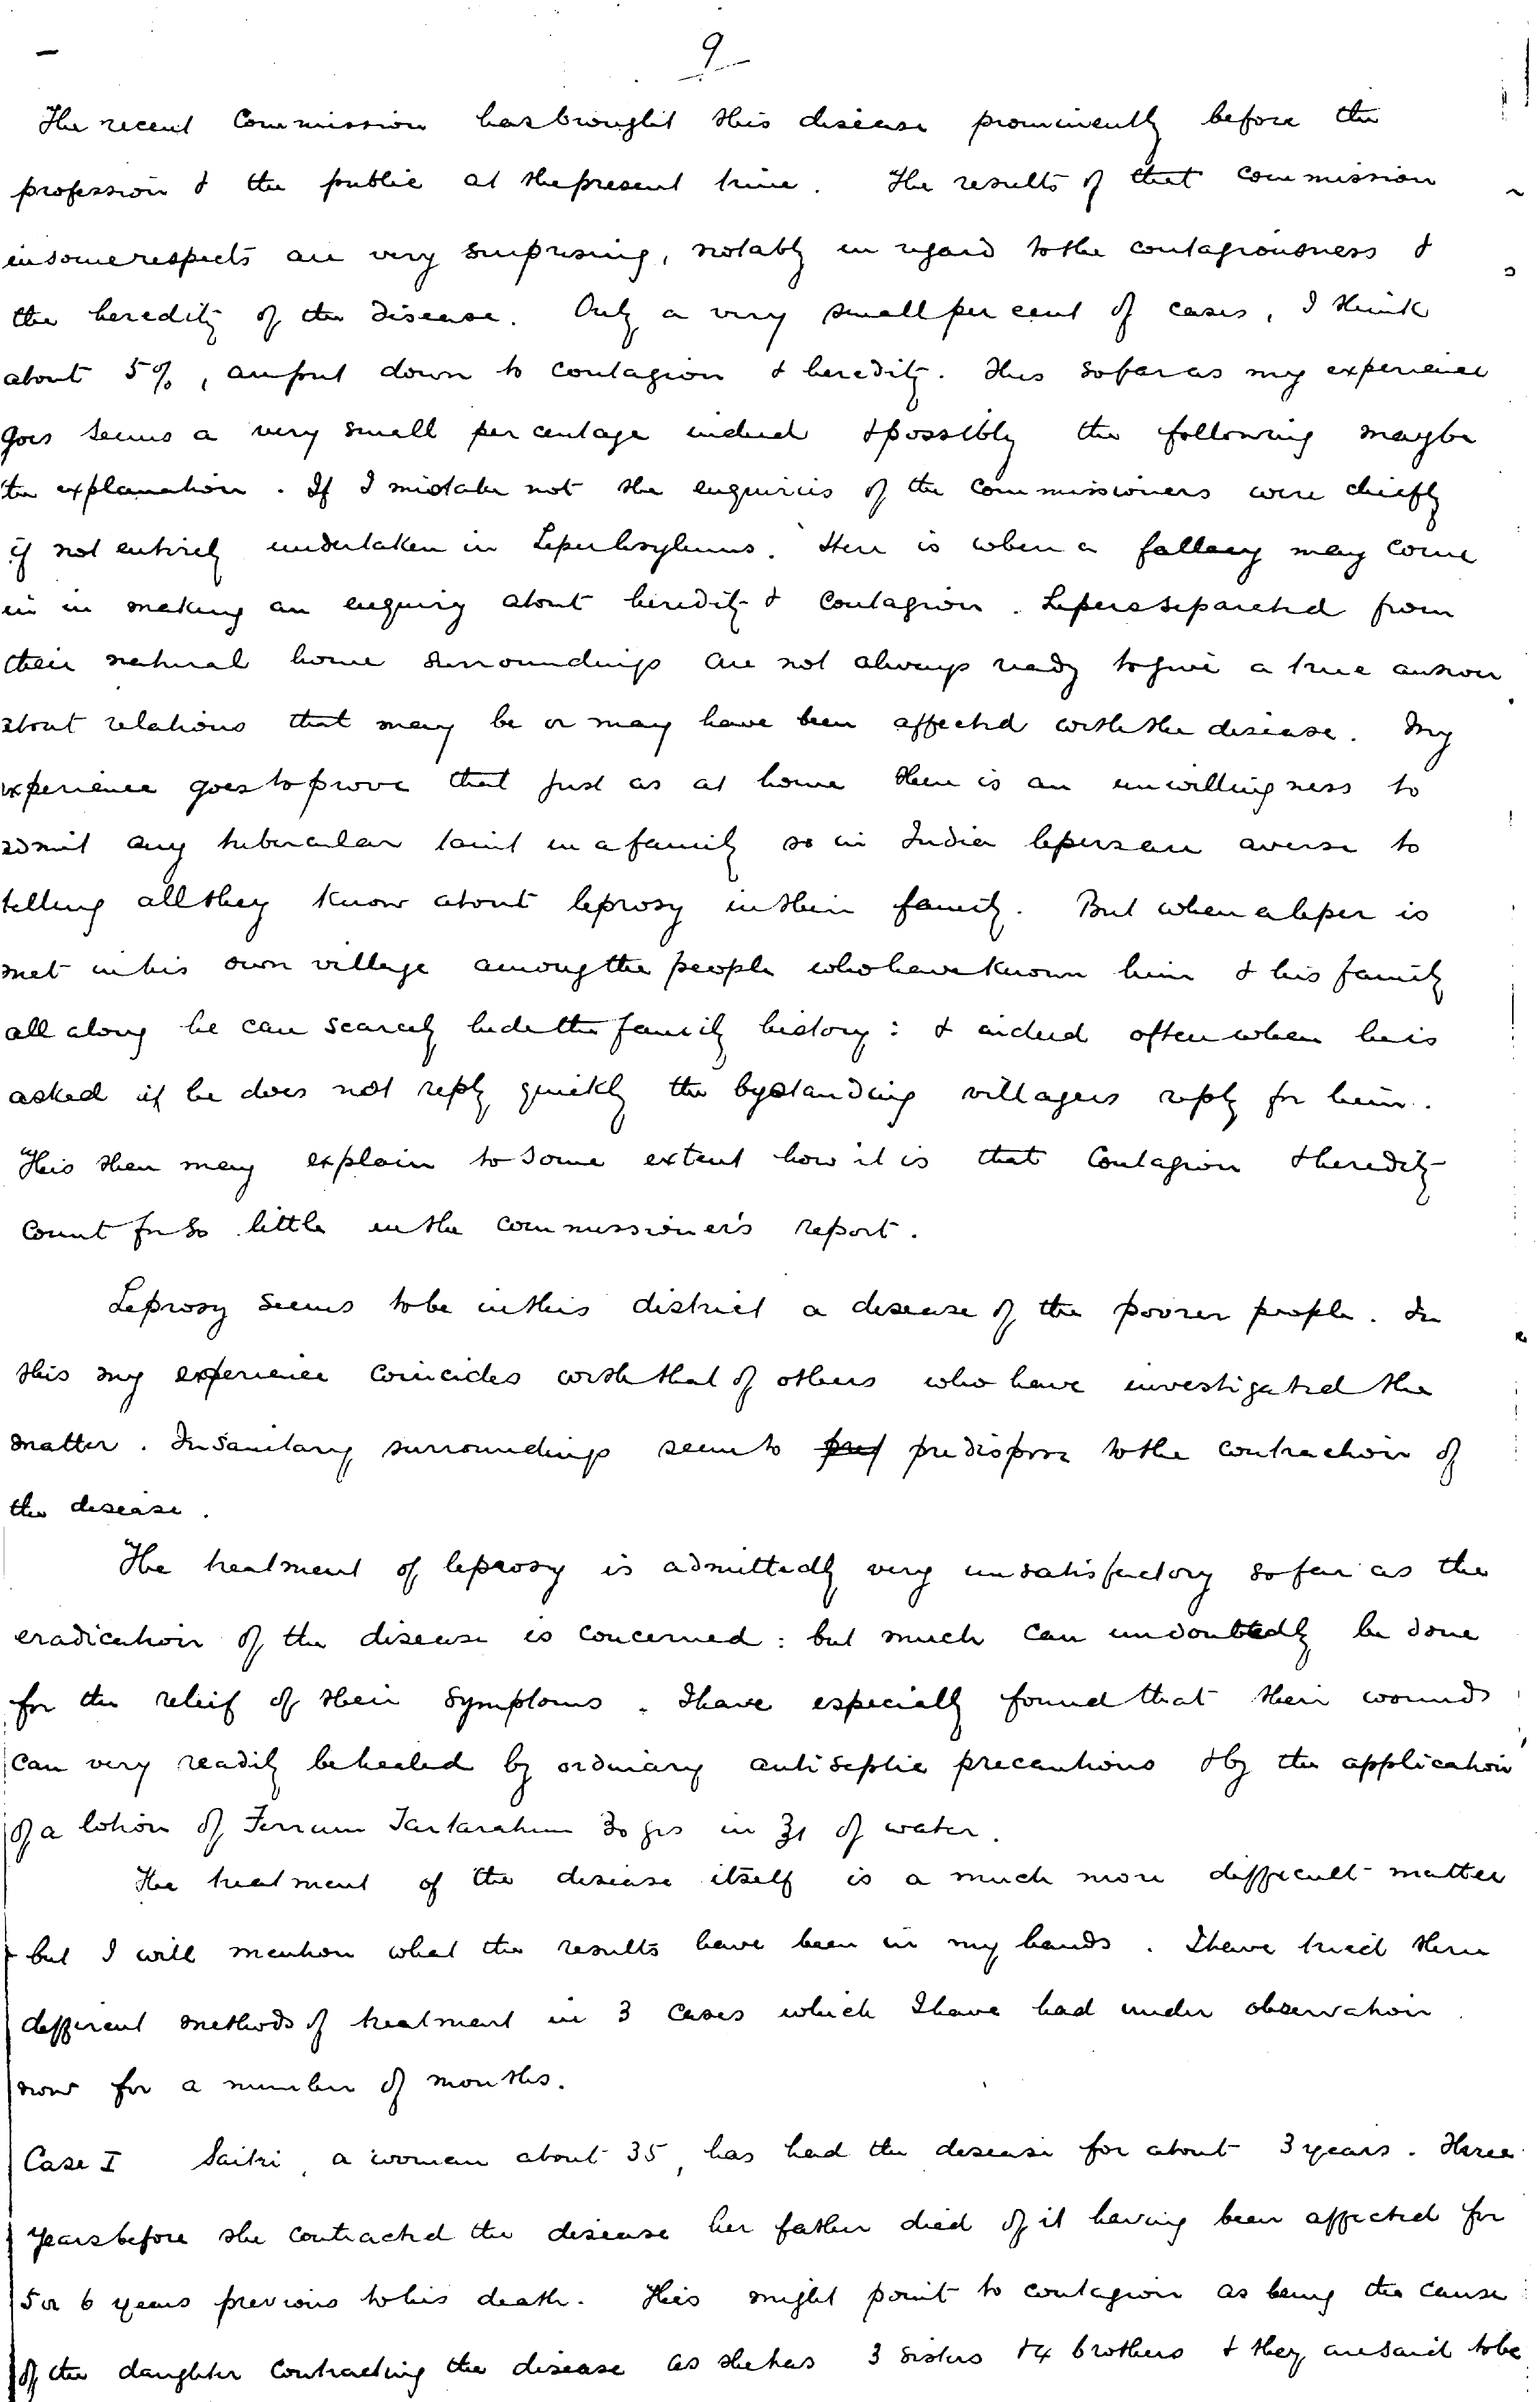 9
The recent Commission has brought this disease prominently before the
profession & the public at the present time. The results of that commission
in some respects are very surprising, notably in regard to the contagiousness &
the heredity of the disease. Only a very small per cent of cases, I think
about 5%, are put down to contagion & heredity. This so far as my experience
goes seems a very small percentage indeed & possibly the following may be
the explanation. If I mistake not the enquiries of the Commissioners were chiefly
if not entirely undertaken in Leper Asylums. Here is where a fallacy may come
in in making an enquiry about heredity & contagion. Lepers separated from
their natural home surroundings are not always ready to give a true answer
about relations that may be or may have been affected with the disease. My
experience goes to prove that just as at home there is an unwillingness to
admit any tubercular taint in a family so in India lepers are averse to
telling all they know about leprosy in their family. But when a leper is
met in his own village among the people who have known him & his family
all along he can scarcely hide the family history: & indeed often when he is
asked if he does not reply quickly the bystanding villagers reply for him.
This then may explain to some extent how it is that Contagion & heredity
count for so little in the commissioner's report.
Leprosy seems to be in this district a disease of the poorer people. In
this my experience coincides with that of others who have investigated the
matter. Insanitary surroundings seem to pred predispose to the contraction of
the disease.
The treatment of leprosy is admittedly very unsatisfactory so far as the
eradication of the disease is concerned: but much can undoubtedly be done
for the releif of their symptoms. I have especially found that their wounds
can very readily be healed by ordinary antiseptic precautions & by the application
of a lotion of Ferrum Tartaratum 30 grs in ℥1 of water.
The treatment of the disease itself is a much more difficult matter
but I will mention what the results have been in my hands. I have tried three
different methods of treatment in 3 cases which I have had under observation
now for a number of months.
Case I Saitri, a woman about 35, has had the disease for about 3 years. Three
years before she contracted the disease her father died of it having been affected for
5 or 6 years previous to his death. This might point to contagion as being the cause
of the daughter contracting the disease as she has 3 sisters & 4 brothers & they are said to be